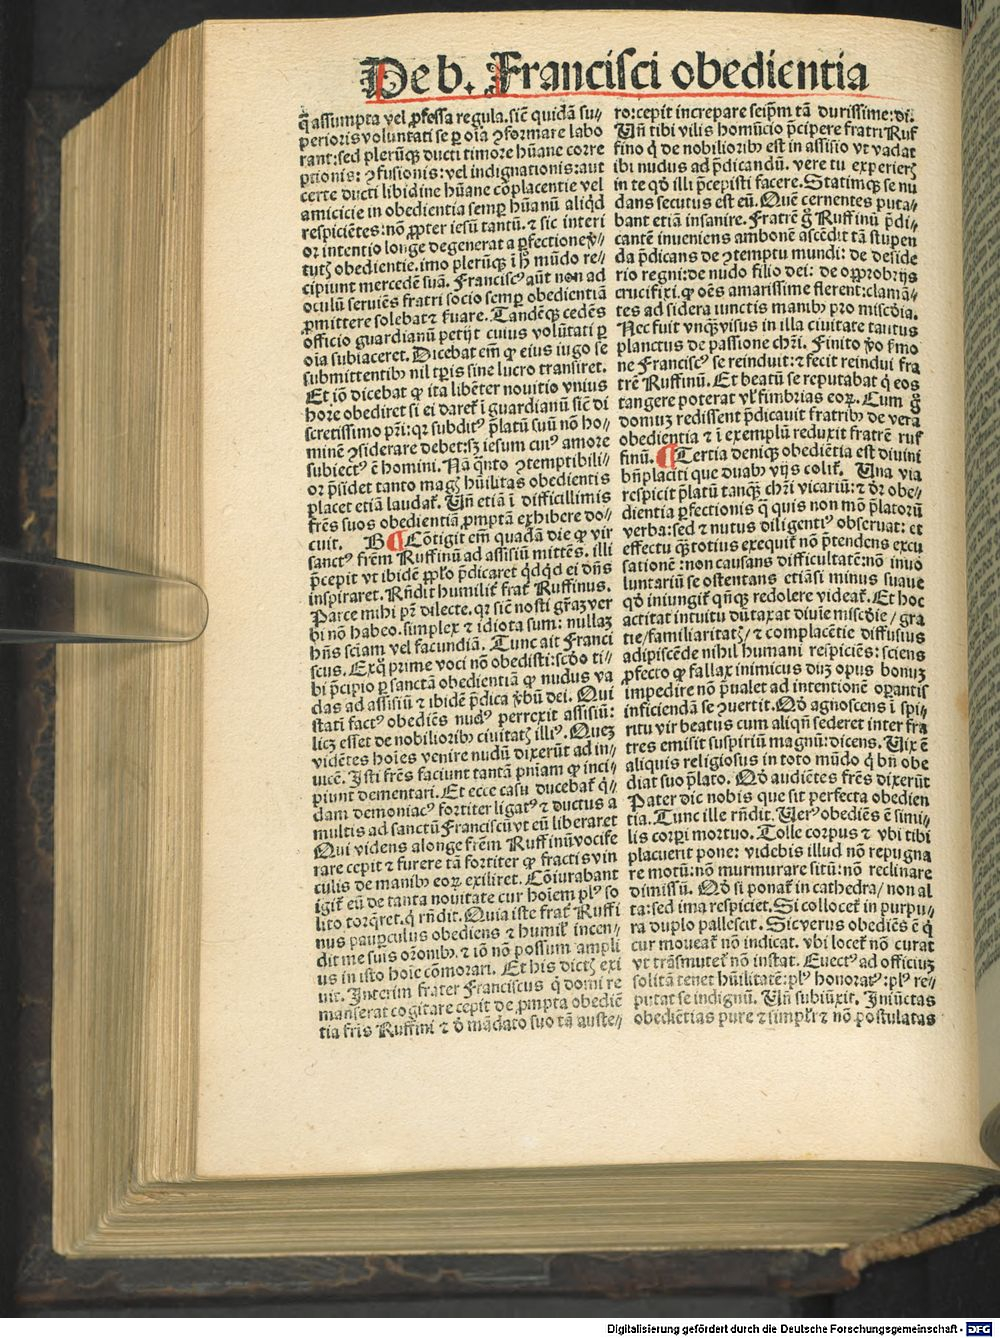 De b. Francisci obedientia
q̃ assumpta vel ꝓfessa regula. sic̃ quidã su⸗
perioris voluntati se ꝑ oĩa ꝯformare labo
rant: sed plerũqꝫ ducti timore hũane corre
ptionis: ꝯfusionis: vel indignationis: aut
certe ducti libidine hũane cõplacentie vel
amicicie in obedientia semꝑ hũanũ aliqͥd
respiciẽtes: nõ ꝓpter iesũ tantũ. ⁊ sic interi
or intentio longe degenerat a ꝑfectione
obedientie. imo plerũqꝫ ĩ h̃ mũdo re⸗
cipiunt mercedẽ suã. Franciscꝰ aũt non ad
oculũ seruiẽs fratri socio semꝑ obedientiã
ꝓmittere solebat ⁊ ẜuare. Tandẽqꝫ cedẽs
officio guardianũ petijt cuius volũtati ꝑ
oĩa subiaceret. Dicebat em̃ ꝙ eius iugo se
submittentibꝰ nil tꝑis sine lucro transiret.
Et iõ dicebat ꝙ ita libẽter nouitio vnius
hore obediret si ei daret̃ ĩ guardianũ sic̃ di
scretissimo pr̃i: qꝛ subditꝰ p̃latũ suũ nõ ho⸗
minẽ ꝯsiderare debet: sꝫ iesum cuiꝰ amore
subiectꝰ ẽ homini. Nã qͣnto ꝯtemptibili⸗
or p̃sidet tanto magꝭ hũilitas obedientis
placet etiã laudat̃. Vñ etiã ĩ difficillimis
fr̃es suos obedientiã ꝓmptã exhibere do⸗
cuit. B ¶ Cõtigit em̃ quadã die ꝙ vir
sanctꝰ fr̃em Ruffinũ ad assisiũ mittẽs. illi
p̃cepit vt ibidẽ pp̃lo p̃dicaret qͥdqͥd ei dñs
inspiraret. Rñdit humilit̃ frat̃ Ruffinus.
Parce mihi pr̃ dilecte. qꝛ sic̃ nosti gr̃aꝫ ver
bi nõ habeo. simplex ⁊ idiota sum: nullaꝫ
hñs sciam vel facundiã. Tunc ait Franci
scus. Exqͦ prime voci nõ obedisti: scd̃o ti⸗
bi p̃cipio ꝑ sanctã obedientiã ꝙ nudus va
das ad assisiũ ⁊ ibidẽ p̃dica ṽbũ dei. Qui
stati factꝰ obediẽs nudꝰ perrexit assisiũ:
licꝫ esset de nobilioribꝰ ciuitatꝭ illiꝰ. Queꝫ
vidẽtes hoĩes venire nudũ dixerũt ad in⸗
uicẽ. Isti fr̃es faciunt tantã pñiam ꝙ inci⸗
piunt dementari. Et ecce casu ducebat̃ q̃⸗
dam demoniacꝰ fortiter ligatꝰ ⁊ ductus a
multis ad sanctũ Franciscũ vt eũ liberaret
Qui videns alonge fr̃em Ruffinũ vocife
rare cepit ⁊ furere tã fortiter ꝙ fractis vin
culis de manibꝰ eoꝝ exiliret. Cõiurabant
igit̃ eũ de tanta nouitate cur hoĩem plꝰ so
lito torq̃ret. qͥ rñdit. Quia iste frat̃ Ruffi
nus pauꝑculus obediens ⁊ humil̃ incen⸗
dit me suis oro͂nibꝰ. ⁊ iõ nõ possum ampli
us in isto hoĩe cõmorari. Et his dictꝭ exi
uit. Interim frater Franciscus qͥ domi re
manserat cogitare cepit de ꝓmpta obediẽ
tia fr̃is Ruffini ⁊ ð mãdato suo tã auste⸗
ro: cepit increpare seip̃m tã durissime: di.
Vñ tibi vilis homũcio p̃cipere fratri Ruf
fino qͥ de nobilioribꝰ est in assisio vt vadat
ibi nudus ad p̃dicandũ. vere tu experierꝭ
in te qd̃ illi p̃cepisti facere. Statimqꝫ se nu
dans secutus est eũ. Quẽ cernentes puta⸗
bant etiã insanire. Fratrẽ g̃ Ruffinũ p̃di⸗
cantẽ inueniens ambonẽ ascẽdit tã stupen
da p̃dicans de ꝯtemptu mundi: de deside
rio regni: de nudo filio dei: de oꝓbrijs
crucifixi. ꝙ oẽs amarissime flerent: clamã⸗
tes ad sidera iunctis manibꝰ pro misc̃dia.
Nec fuit vnqͣꝫ visus in illa ciuitate tantus
planctus de passione chr̃i. Finito ṽo ẜmo
ne Franciscꝰ se reinduit: ⁊ fecit reindui fra
trẽ Ruffinũ. Et beatũ se reputabat qͥ eos
tangere poterat vl̃ fimbrias eoꝝ. Cum g̃
domuꝫ redissent p̃dicauit fratribꝰ de vera
obedientia ⁊ ĩ exemplũ reduxit fratrẽ ruf
finũ. ¶ Tertia deniqꝫ obediẽtia est diuini
bñplaciti que duabꝰ vijs colit̃. Una via
respicit p̃latũ tanqͣꝫ chr̃i vicariũ: ⁊ dr̃ obe⸗
dientia perfectionis q̃ quis non mõ p̃latorũ
verba: sed ⁊ nutus diligentiꝰ obseruat: et
effectu qͣꝫtotius exequit̃ nõ p̃tendens excu
sationẽ: non causans difficultatẽ: nõ inuo
luntariũ se ostentans etiãsi minus suaue
qd̃ iniungit̃ qñqꝫ redolere videat̃. Et hoc
actitat intuitu dũtaxat diuĩe misc̃die / gra
tie / familiaritatꝭ / ⁊ complacẽtie diffusius
adipiscẽde nihil humani respiciẽs: sciens
ꝓfecto ꝙ fallax inimicus duꝫ opus bonuꝫ
impedire nõ p̃ualet ad intentionẽ oꝑantis
inficiendã se ꝯuertit. Qd̃ agnoscens ĩ spi⸗
ritu vir beatus cum aliqñ sederet inter fra
tres emisit suspiriũ magnũ: dicens. Uix ẽ
aliquis religiosus in toto mũdo qͥ bñ obe
diat suo p̃lato. Qd̃ audiẽtes fr̃es dixerũt
Pater dic nobis que sit perfecta obedien
tia. Tunc ille rñdit. Uerꝰ obediẽs ẽ simi⸗
lis corꝑi mortuo. Tolle corpus ⁊ vbi tibi
placuerit pone: videbis illud nõ repugna
re motũ: nõ murmurare sitũ: nõ reclinare
dimissũ. Qd̃ si ponat̃ in cathedra / non al
ta: sed ima respiciet. Si collocet̃ in purpu⸗
ra duplo pallescit. Sic verus obediẽs ẽ qͥ
cur moueat̃ nõ indicat. vbi locet̃ nõ curat
vt trãsmutet̃ nõ instat. Euectꝰ ad officiuꝫ
solitã tenet hũilitatẽ: plꝰ honoratꝰ: plꝰ re⸗
putat se indignũ. Vñ subiũxit. Iniũctas
obediẽtias pure ⁊ simpl̃r ⁊ nõ postulatas
Digitalisierung gefördert durch die Deutsche Forschungsgemeinschaft - DFG